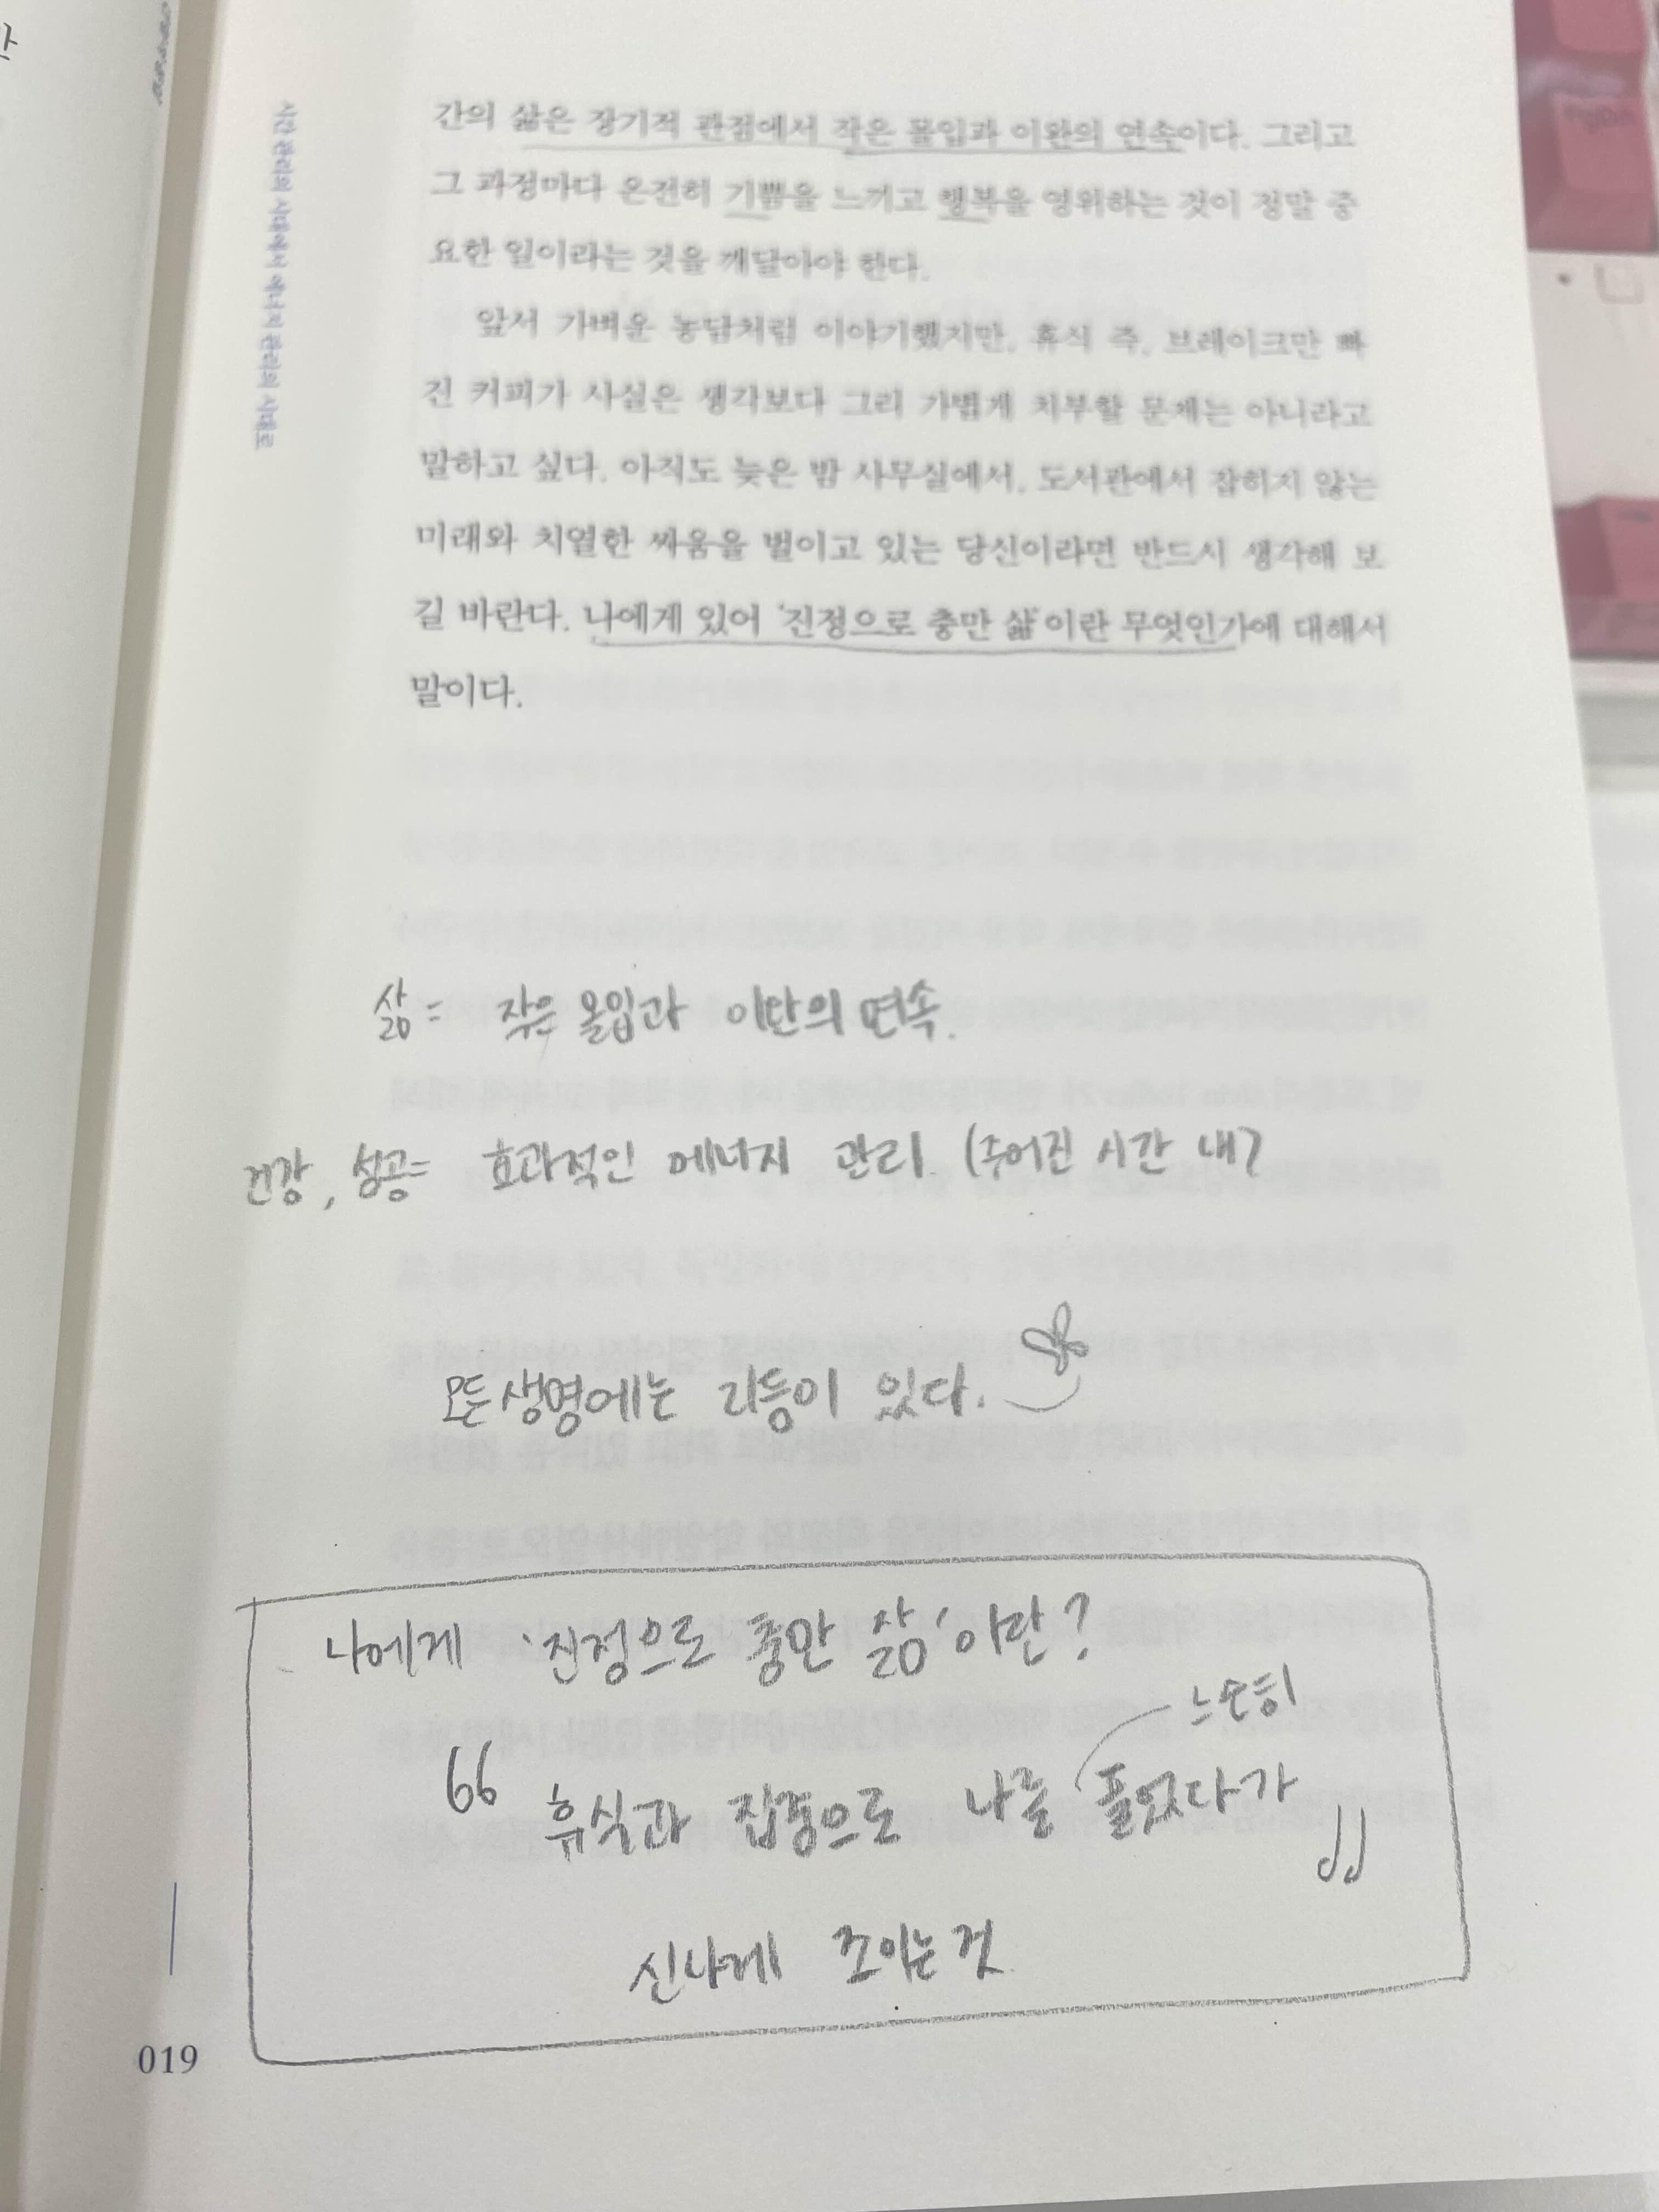 시간 관리의 시대에서 에너지 관리의 시대로
간의 삶은 장기적 관점에서 작은 몰입과 이완의 연속이다. 그리고
그 과정마다 온전히 기쁨을 느끼고 행복을 영위하는 것이 정말 중
요한 일이라는 것을 깨달아야 한다.
앞서 가벼운 농담처럼 이야기했지만, 휴식 즉, 브레이크만 빠
진 커피가 사실은 생각보다 그리 가볍게 치부할 문제는 아니라고
말하고 싶다. 아직도 늦은 밤 사무실에서, 도서관에서 잡히지 않는
미래와 치열한 싸움을 벌이고 있는 당신이라면 반드시 생각해 보
길 바란다. 나에게 있어 '진정으로 충만 삶'이란 무엇인가에 대해서
말이다.
삶 = 작은 몰입과 이완의 연속.
건강, 성공 = 효과적인 에너지 관리. (주어진 시간 내)
모든 생명에는 리듬이 있다.
나에게 '진정으로 충만 삶'이란?
느슨히
66 휴식과 집중으로 나를 풀었다가
신나게 조이는 것
019